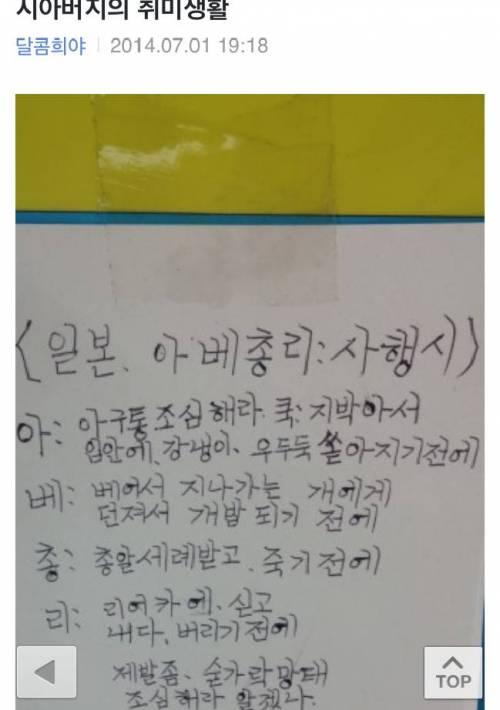 시아버지의 취미생활
달콤희야 | 2014.07.01 19:18
<일본, 아베총리:사행시>
아: 아구통조심해라. 콕: 지박아서
입안에, 강냉이, 우두둑 쏟아지기전에
베: 베어서 지나가는 개에게
던져서 개밥 되기 전에
총: 총알세례받고, 죽기전에
리: 리어카에, 싣고
내다, 버리기전에
제발좀, 숟가락망태
조심해라 알겠나.
TOP